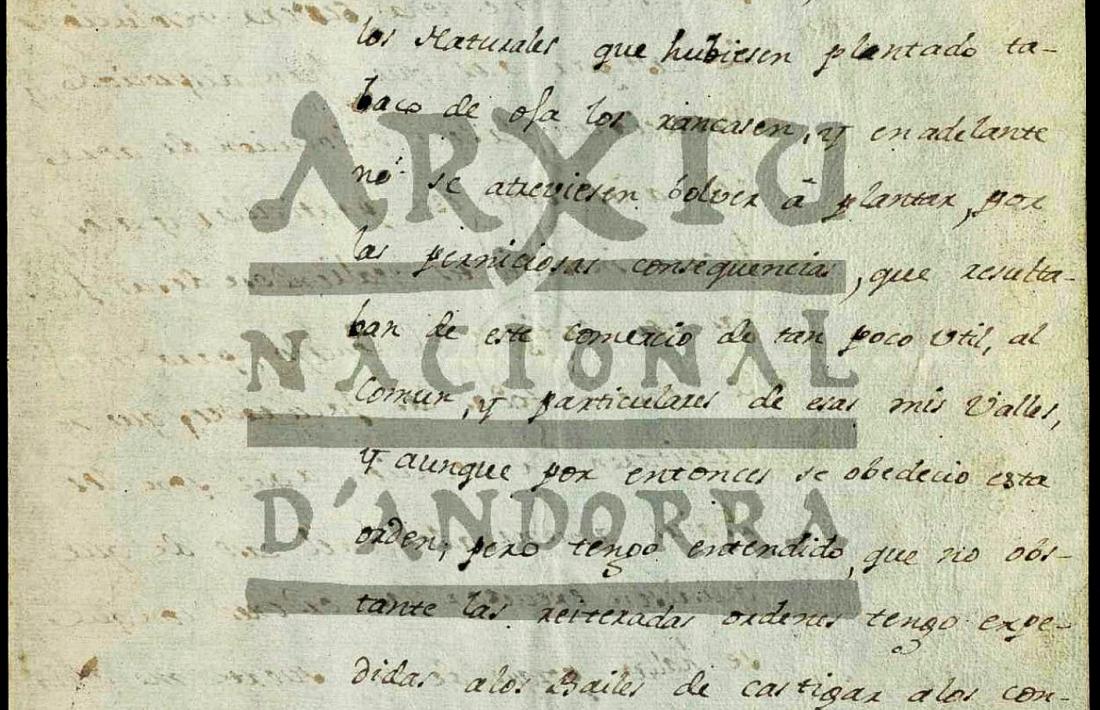 los Naturales que hubiesen plantado ta-
baco de ofa los rancasen, y en adelante
no se atreviesen bolver â plantar, por
las perniciosas consequencias, que resulta-
ban de este comercio de tan poco vtil, al
Comun, y particulares de esas mis Valles,
y aunque por entonces se obedecio esta
orden, pero tengo entendido, que no obs-
tante las reiteradas ordenes tengo expe-
didas alos Bailes de castigar alos con-
ARXIU
NACIONAL
D'ANDORRA